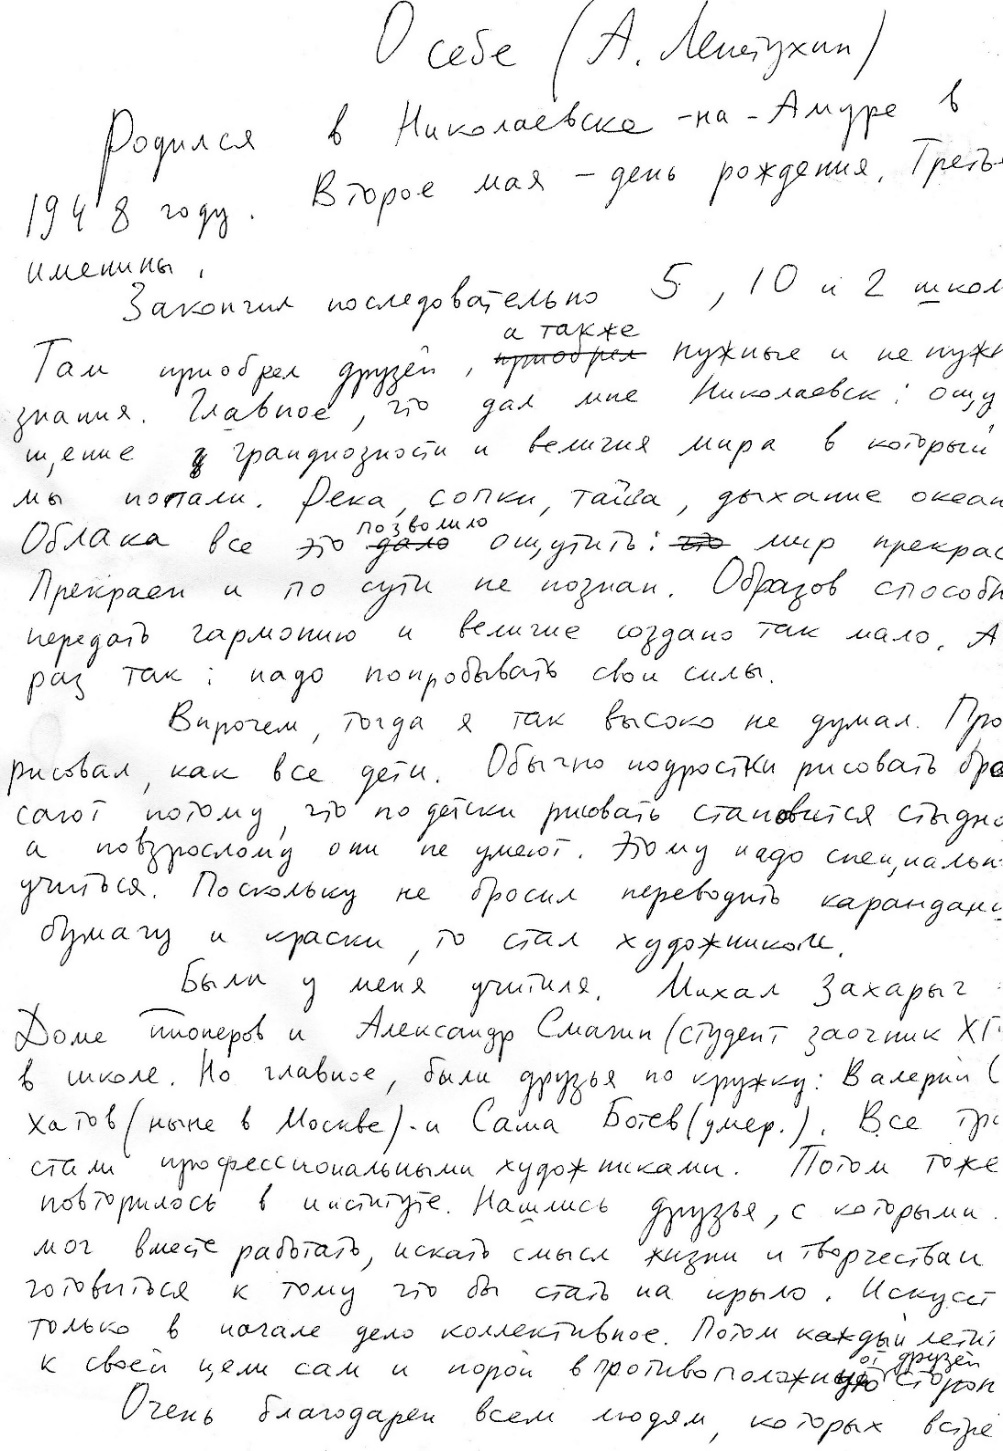 О себе (А. Лепетухин)
Родился в Николаевске-на-Амуре в
1948 году. Второе мая – день рождения. Треть
именины.
Закончил последовательно 5, 10 и 2 школ
а также
Там приобрел друзей, приобрел нужные и не нужн
знания. Главное, что дал мне Николаевск: ощу
щение грандиозности и величия мира в который
мы попали. Река, сопки, тайга, дыхание океан
позволило
Облака все это дало ощутить: что мир прекрас
Прекрасен и по сути не познан. Образов способн
передать гармонию и величие создано так мало. А
раз так: надо попробывать свои силы.
Впрочем, тогда я так высоко не думал. Про
рисовал, как все дети. Обычно подростки рисовать бро
сают потому, что по детски рисовать становится стыдно
а повзрослому они не умеют. Этому надо специальн
учиться. Поскольку не бросил переводить карандаш
бумагу и краски, то стал художником.
Были у меня учителя. Михал Захарыч
Доме пионеров и Александр Смагин (студент заочник ХГ
в школе. Но главное, были друзья по кружку: Валерий С
хатов (ныне в Москве) и Саша Ботев (умер.). Все тр
стали профессиональными художниками. Потом тоже
повторилось в институте. Нашлись друзья, с которыми
мог вместе работать, искать смысл жизни и творчества и
готовиться к тому что бы стать на крыло. Искусст
только в начале дело коллективное. Потом каждый летит
от друзей
к своей цели сам и порой в противоположную сторон
Очень благодарен всем людям, которых встре